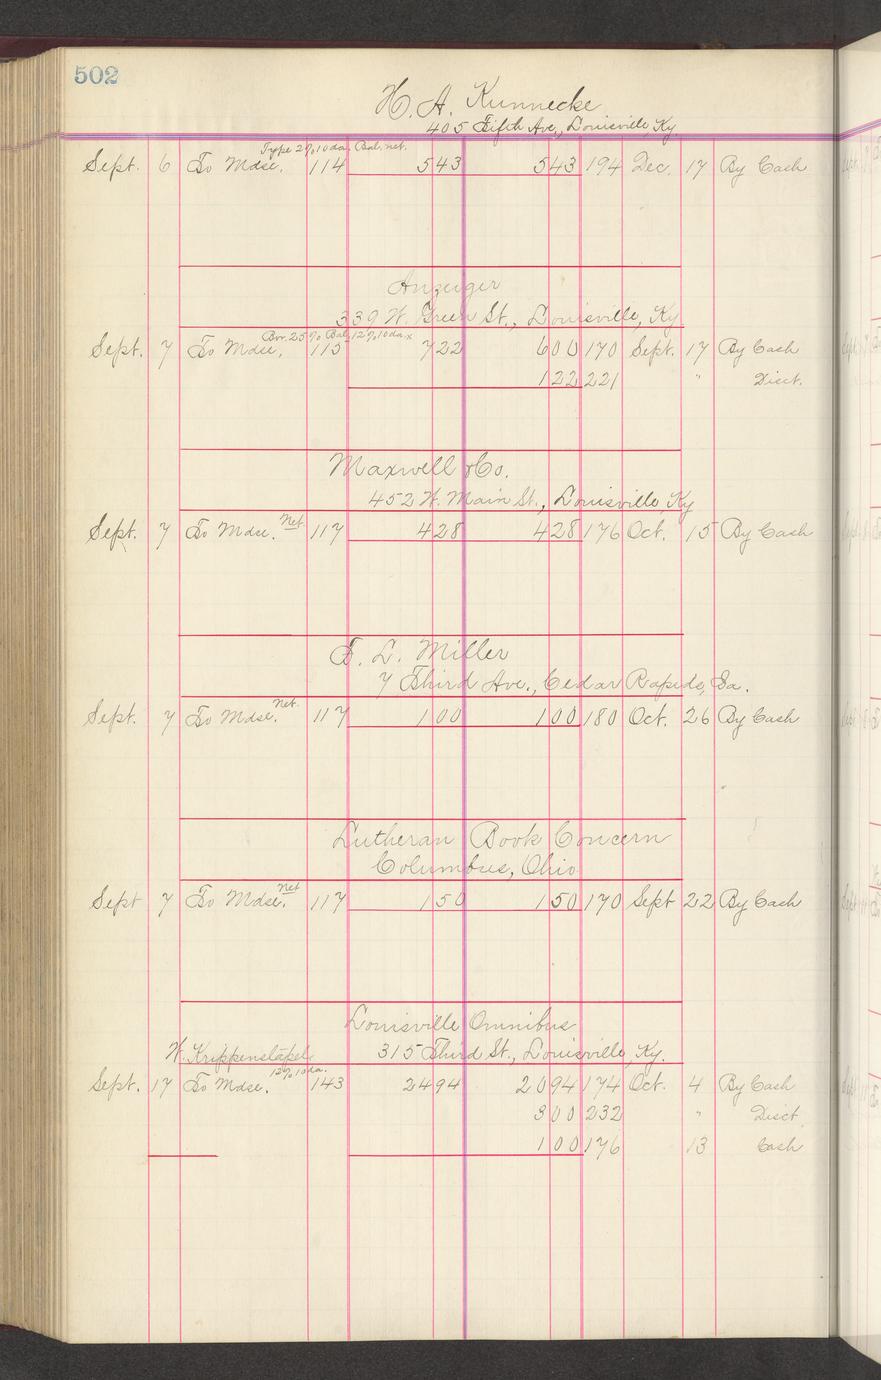 502
H. A. Kunnecke
405 Fifth Ave., Louisville, Ky.
Type 2% 10 da. Bal. net.
Sept. 6 To Mdse. 114 543 543 194 Dec. 17 By Cash
Anzeiger
339 W. Green St., Louisville, Ky
Bor. 25% Bal. 12% 10 da x
Sept. 7 To Mdse. 115 722 600 170 Sept. 17 By Cash
122 221 " Disct.
Maxwell & Co.
452 W. Main St., Louisville, Ky
Sept. 7 To Mdse. Net 117 428 428 176 Oct. 15 By Cash
F. L. Miller
7 Third Ave., Cedar Rapids, Ia.
Sept. 7 To Mdse. Net. 117 100 100 180 Oct. 26 By Cash
Lutheran Book Concern
Columbus, Ohio
Sept 7 To Mdse. Net 117 150 150 170 Sept 22 By Cash
Louisville Omnibus
W. Krippenstapel 315 Third St., Louisville, Ky.
12% 10 da.
Sept. 17 To Mdse. 143 2494 2094 174 Oct. 4 By Cash
300 232 " Disct
100 176 13 Cash